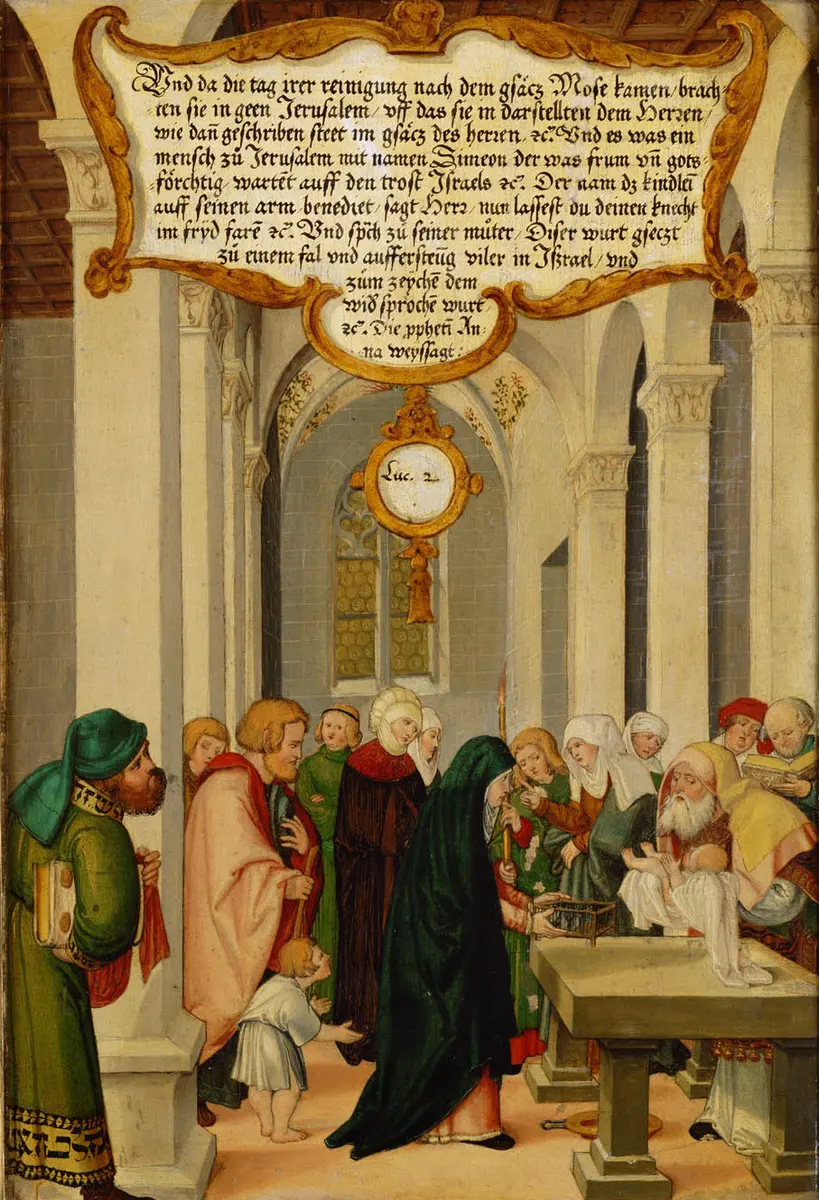 Vnd da die tag irer reinigung nach dem gsäcz Mose kamen / brach⸗
⸗ten sie in geen Jerusalem / vff das sie in darstellten dem Herren /
wie dañ geschriben steet im gsäcz des herren / ꝛc. Vnd es was ein
mensch zů Jerusalem mit namen Simeon der was frum vñ gots⸗
⸗förchtig / wartēt auff den trost Jsraels ꝛc. Der nam dz kindleī
auff seinen arm benediet / sagt Herr / nun lassest du deinen knecht
im fryd farē ꝛc. Vnd sp̄ch zů seiner můter / Diser wurt gseczt
zů einem fal vnd aufferstēūg viler in Jßrael / vnd
zům zeychē dem
wid sprochē wurt /
ꝛc. Die ꝓphetī An⸗
⸗na weyssagt :
Luc. 2